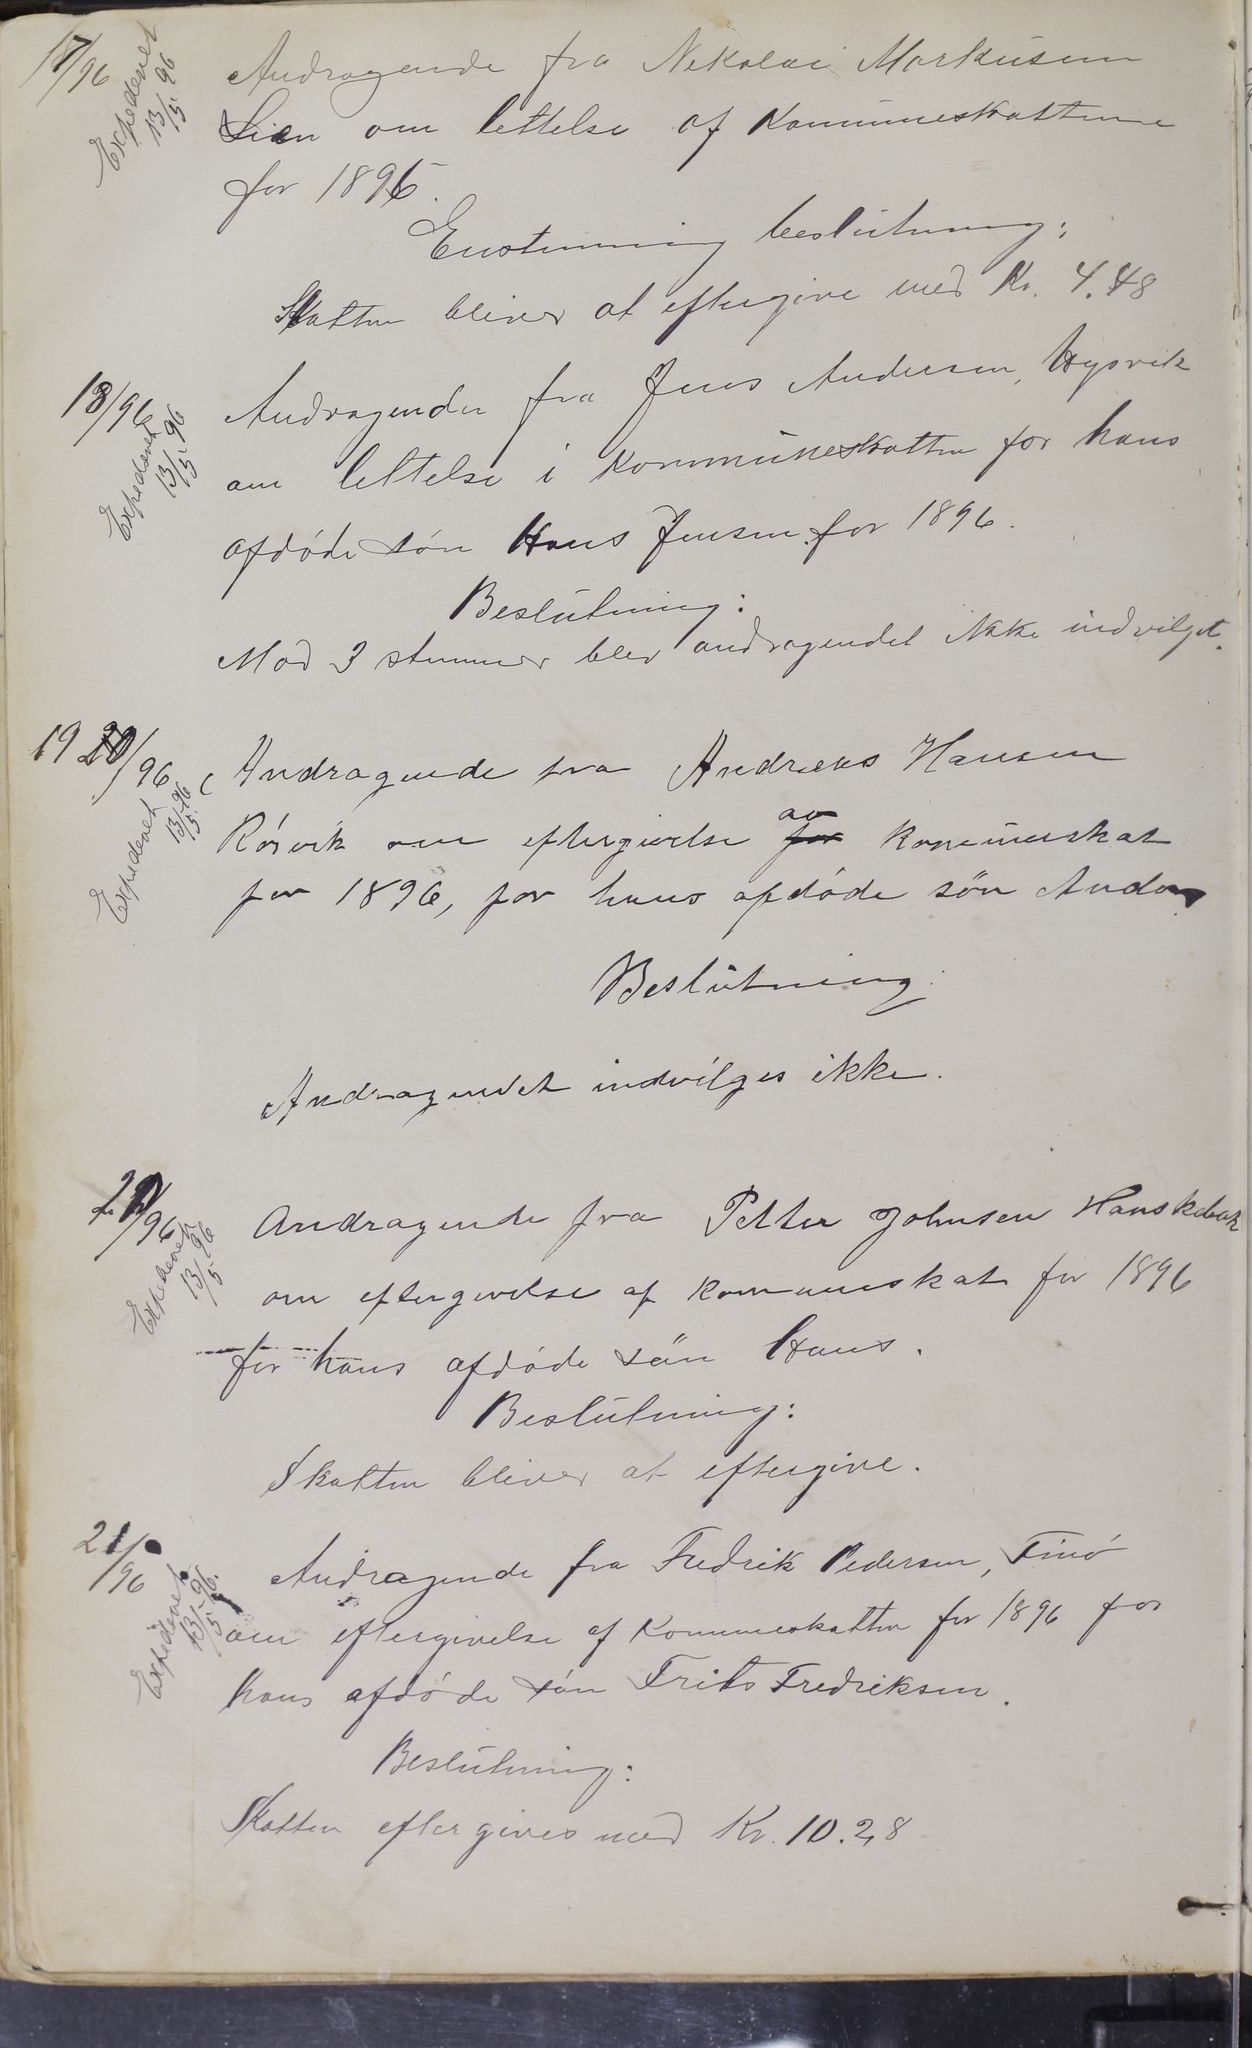 17/96 Andragende fra Nekolai Markusen
Expederet 13/5. 96
Lien om lettelse af Kommuneskatterne
for 1896.
Enstemmig beslutning:
Skatten bliver at eftergive med Kr. 4.48
18/96 Andragende fra Jens Andersen, Hysvik
Expederet 13/5. 96
om lettelse i Kommuneskatten for hans
afdøde søn Hans Jensen for 1896.
Beslutning:
Mod 3 stemmer blev andragendet ikke indvilget.
19/96 Andragende fra Andreas Hansen
Expederet 13/5. 96
Rørvik om eftergivelse av for Kommuneskat
for 1896, for hans afdøde søn Anders
Beslutning.
Andragendet indvilges ikke.
20/96 Andragende fra Petter Johnsen Hanskebak
Expederet 13/5. 96
om eftergivelse af Kommuneskat for 1896
for hans afdøde søn Hans.
Beslutning:
Skatten bliver at eftergive.
21/96 Andragende fra Fredrik Pedersen, Finø
Expederet 13/5. 96.
om eftergivelse af Kommuneskatten for 1896 for
hans afdøde søn Frits Fredriksen.
Beslutning:
Skatten eftergives med Kr. 10.28